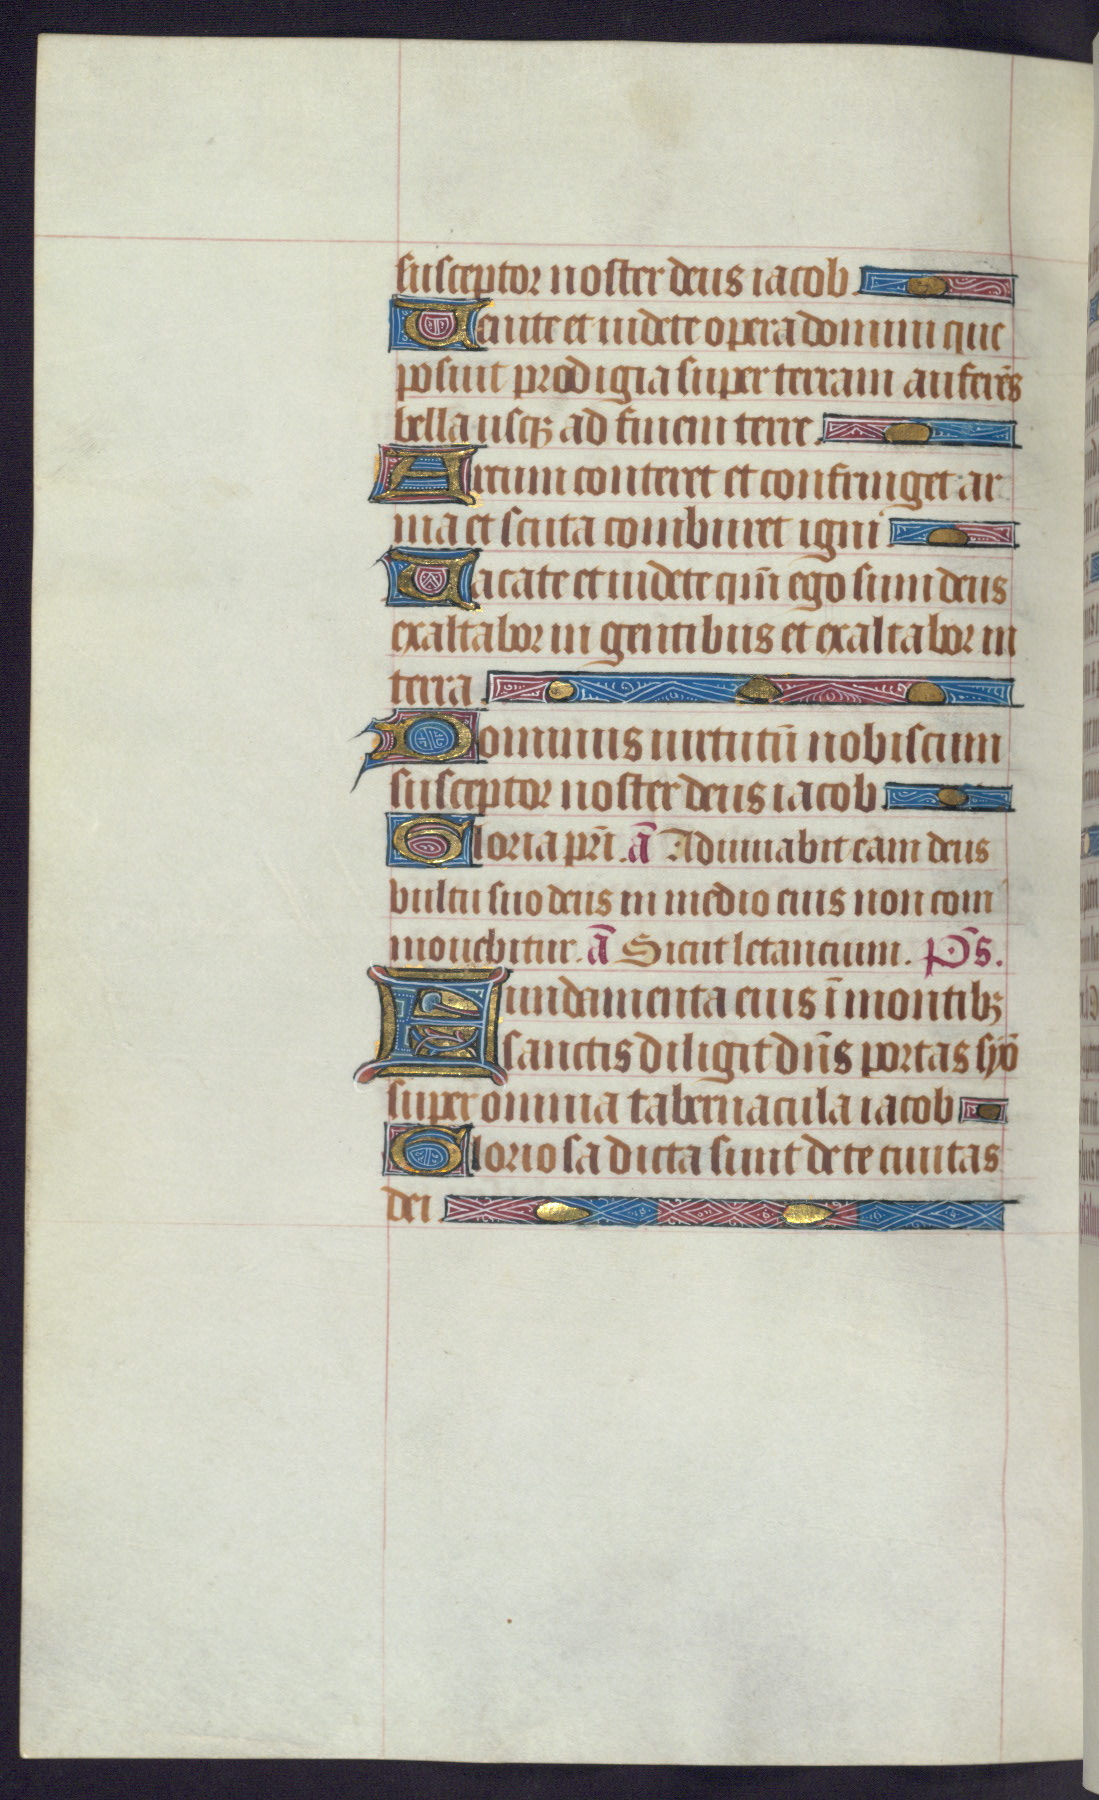 susceptor noster deus iacob.
Uenite et uidete opera domini que
posuit prodigia super terram auferēs
bella usqꝫ ad finem terre.
Arcum conteret et confringet ar
ma et scuta comburet igni.
Uacate et uidete qm̄ ego sum deus
exaltabor in gentibus et exaltabor in
terra.
Dominus uirtutū nobiscum
susceptor noster deus iacob.
Gloria pr̄i. ā Adiuuabit eam deus
vultu suo deus in medio eius non com
mouebitur. ā Sicut letancium. Ps̄.
Fundamenta eius ī montibꝫ
sanctis diligit dn̄s portas syō
super omnia tabernacula iacob
Gloriosa dicta sunt de te ciuitas
dei.